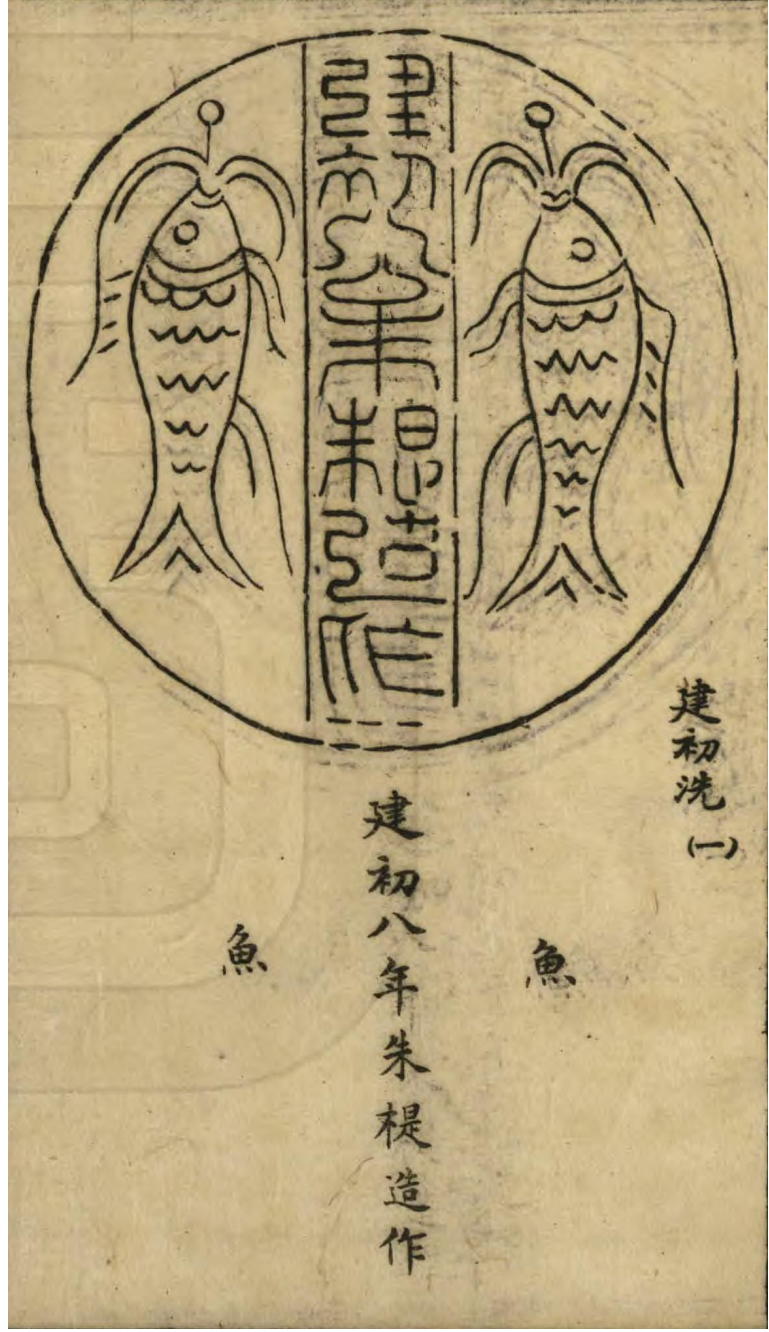 建初八年朱提造作
建初洗
(一)
魚
建初八年朱楗造作
魚